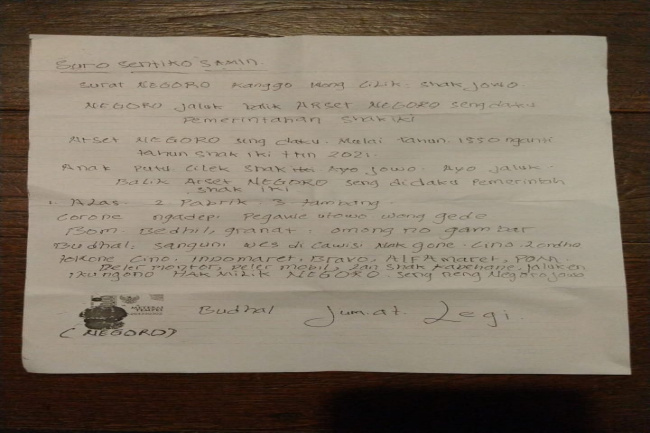 SURO SENTIKO SAMIN.
Surat NEGORO Kanggo Wong CiLiK. Shak Jowo
NEGORO Jaluk balik ARSET NEGORO seng daku
Pemerintahan Shak iki
Arset NEGORO seng daku. Mulai tahun. 1550 nganti
tahun shak iki thn 2021.
Anak Putu Cilek Shak Ayo Jowo. Ayo jaluk.
Balik Arset NEGORO seng didaku Pemerintah
Shak iki
1. Alas 2 Pabrik 3 tambang
Corone ngadepi Pegawe utowo wong gede
Bom. Bedhil, granat: omong no gambar
Budhal: sanguni wes di Cawisi gone. Cino. Londho
Tokone Cino, Indomaret, Bravo, ALFAmaret, POM.
Deler montor, Deler mobil, Dan Shak Kabehane, Jaluken
ikungono HAK MILIK NEGORO. Seng neng Negoro Jowo
Budhal Jum.at. Legi.
(NEGORO)